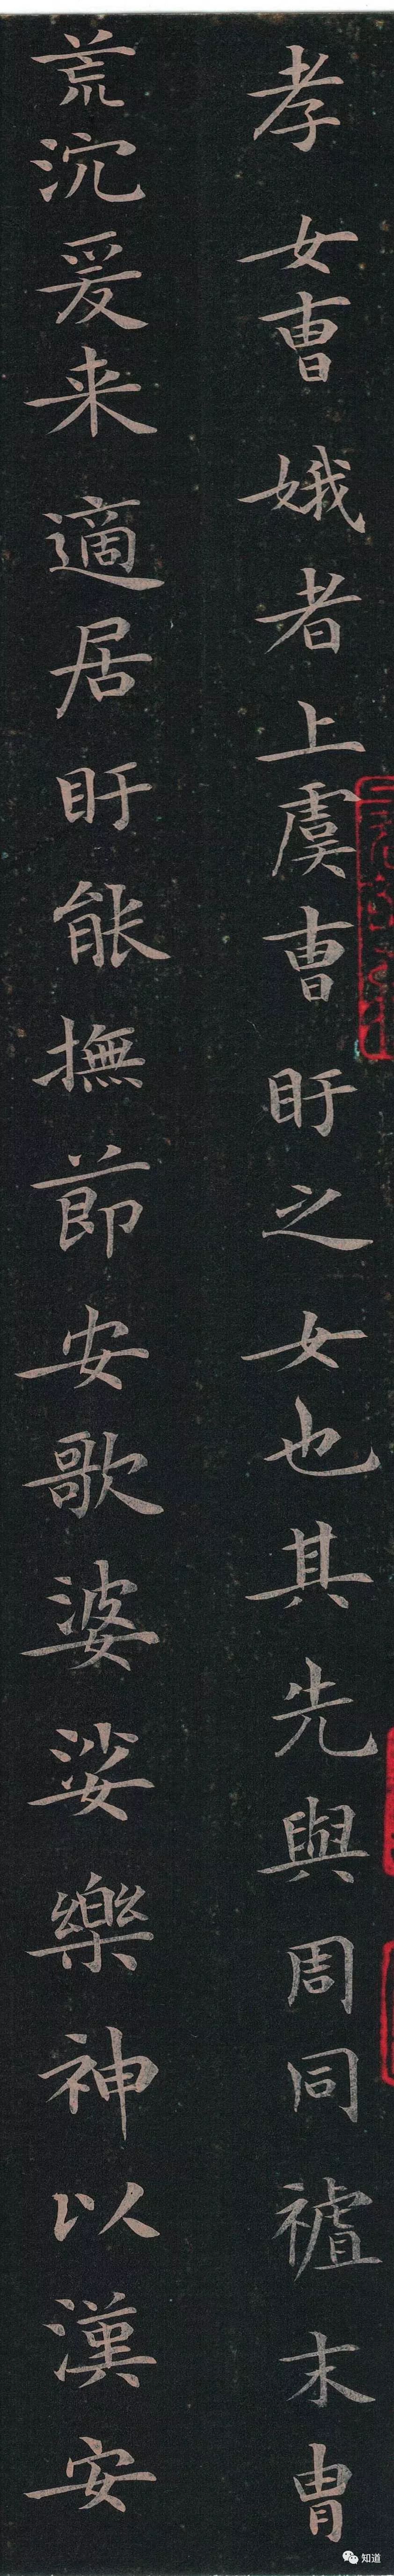 孝女曺娥者上虞曺盱之女也其先與周同禇末冑
荒沉爰来適居盱能撫莭安歌婆娑樂神以漢安
知道